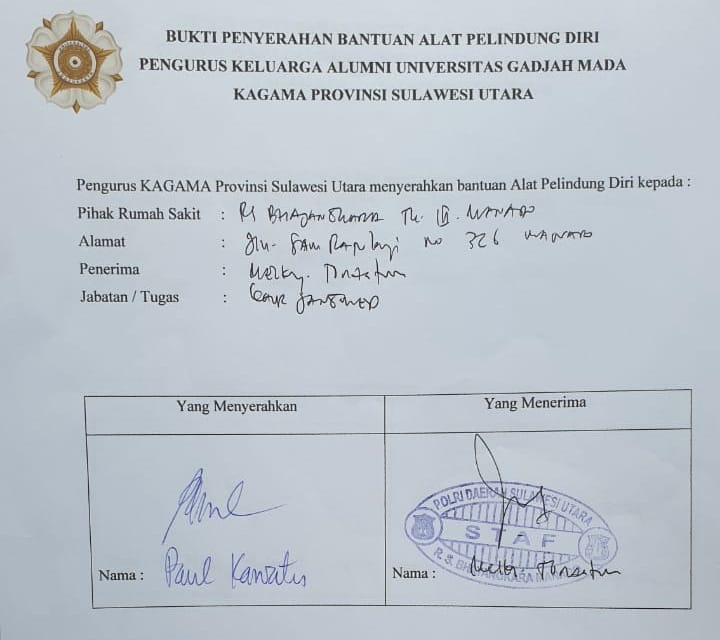 BUKTI PENYERAHAN BANTUAN ALAT PELINDUNG DIRI
PENGURUS KELUARGA ALUMNI UNIVERSITAS GADJAH MADA
KAGAMA PROVINSI SULAWESI UTARA
Pengurus KAGAMA Provinsi Sulawesi Utara menyerahkan bantuan Alat Pelindung Diri kepada :
Pihak Rumah Sakit : RS BHAYANGKARA TK. III. MANADO
Alamat : Jln. SAM Ratulangi no 326 MANADO
Penerima :
Jabatan / Tugas : Kaur
Yang Menyerahkan
Yang Menerima
POLRI DAERAH SULAWESI UTARA
STAF
R. S. BHAYANGKARA
Nama : Paul
Nama :